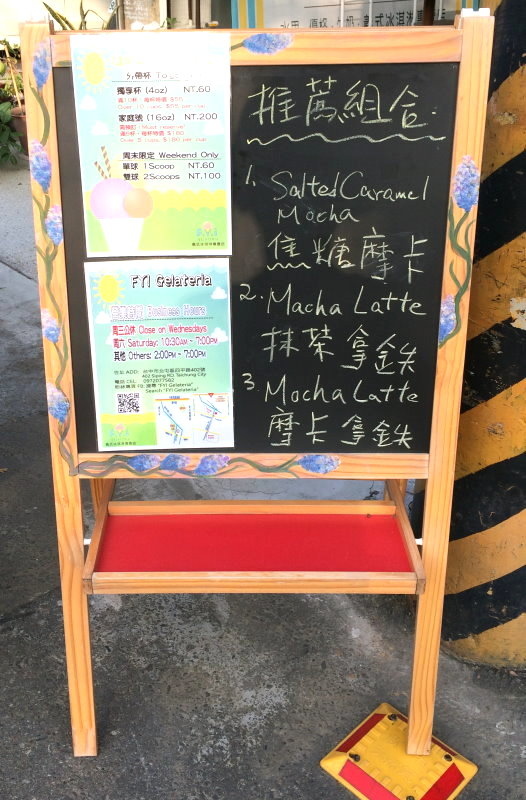 外帶杯
獨享杯 (4oz) NT.60
家庭號 (16oz) NT.200
週末限定 Weekend Only
單球 1Scoop NT.60
雙球 2Scoops NT.100
FYI Gelateria
Business Hours
周三公休 Close on Wednesdays
周六 Saturday: 10:30AM ~ 7:00PM
其他 Others: 2:00PM ~ 7:00PM
住址 ADD: 台中市北屯區四平路402號
402 Siping RD. Taichung City
電話 CEL. 0972077562
Search "FYI Gelateria"
推薦組合.
1. Salted Caramel
Mocha
焦糖摩卡
2. Macha Latte
抹茶拿鉄
3. Mocha Latte
摩卡拿鉄